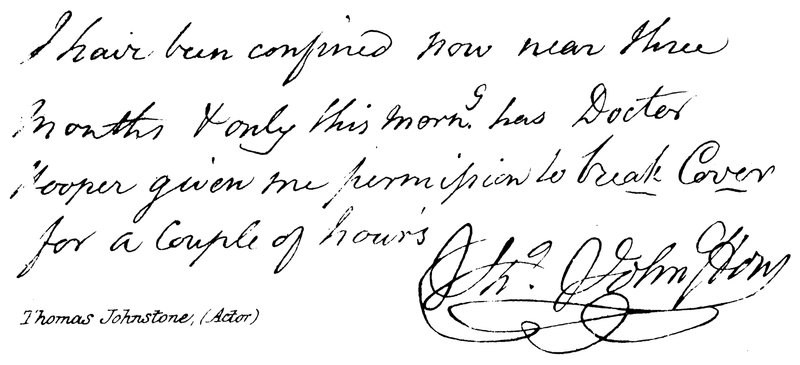 I have been confined now near three
Months & only this mornG. has Doctor
Hooper given me permission to break Cover
for a Couple of hours
Tho. Johnston
Thomas Johnstone, (Actor)